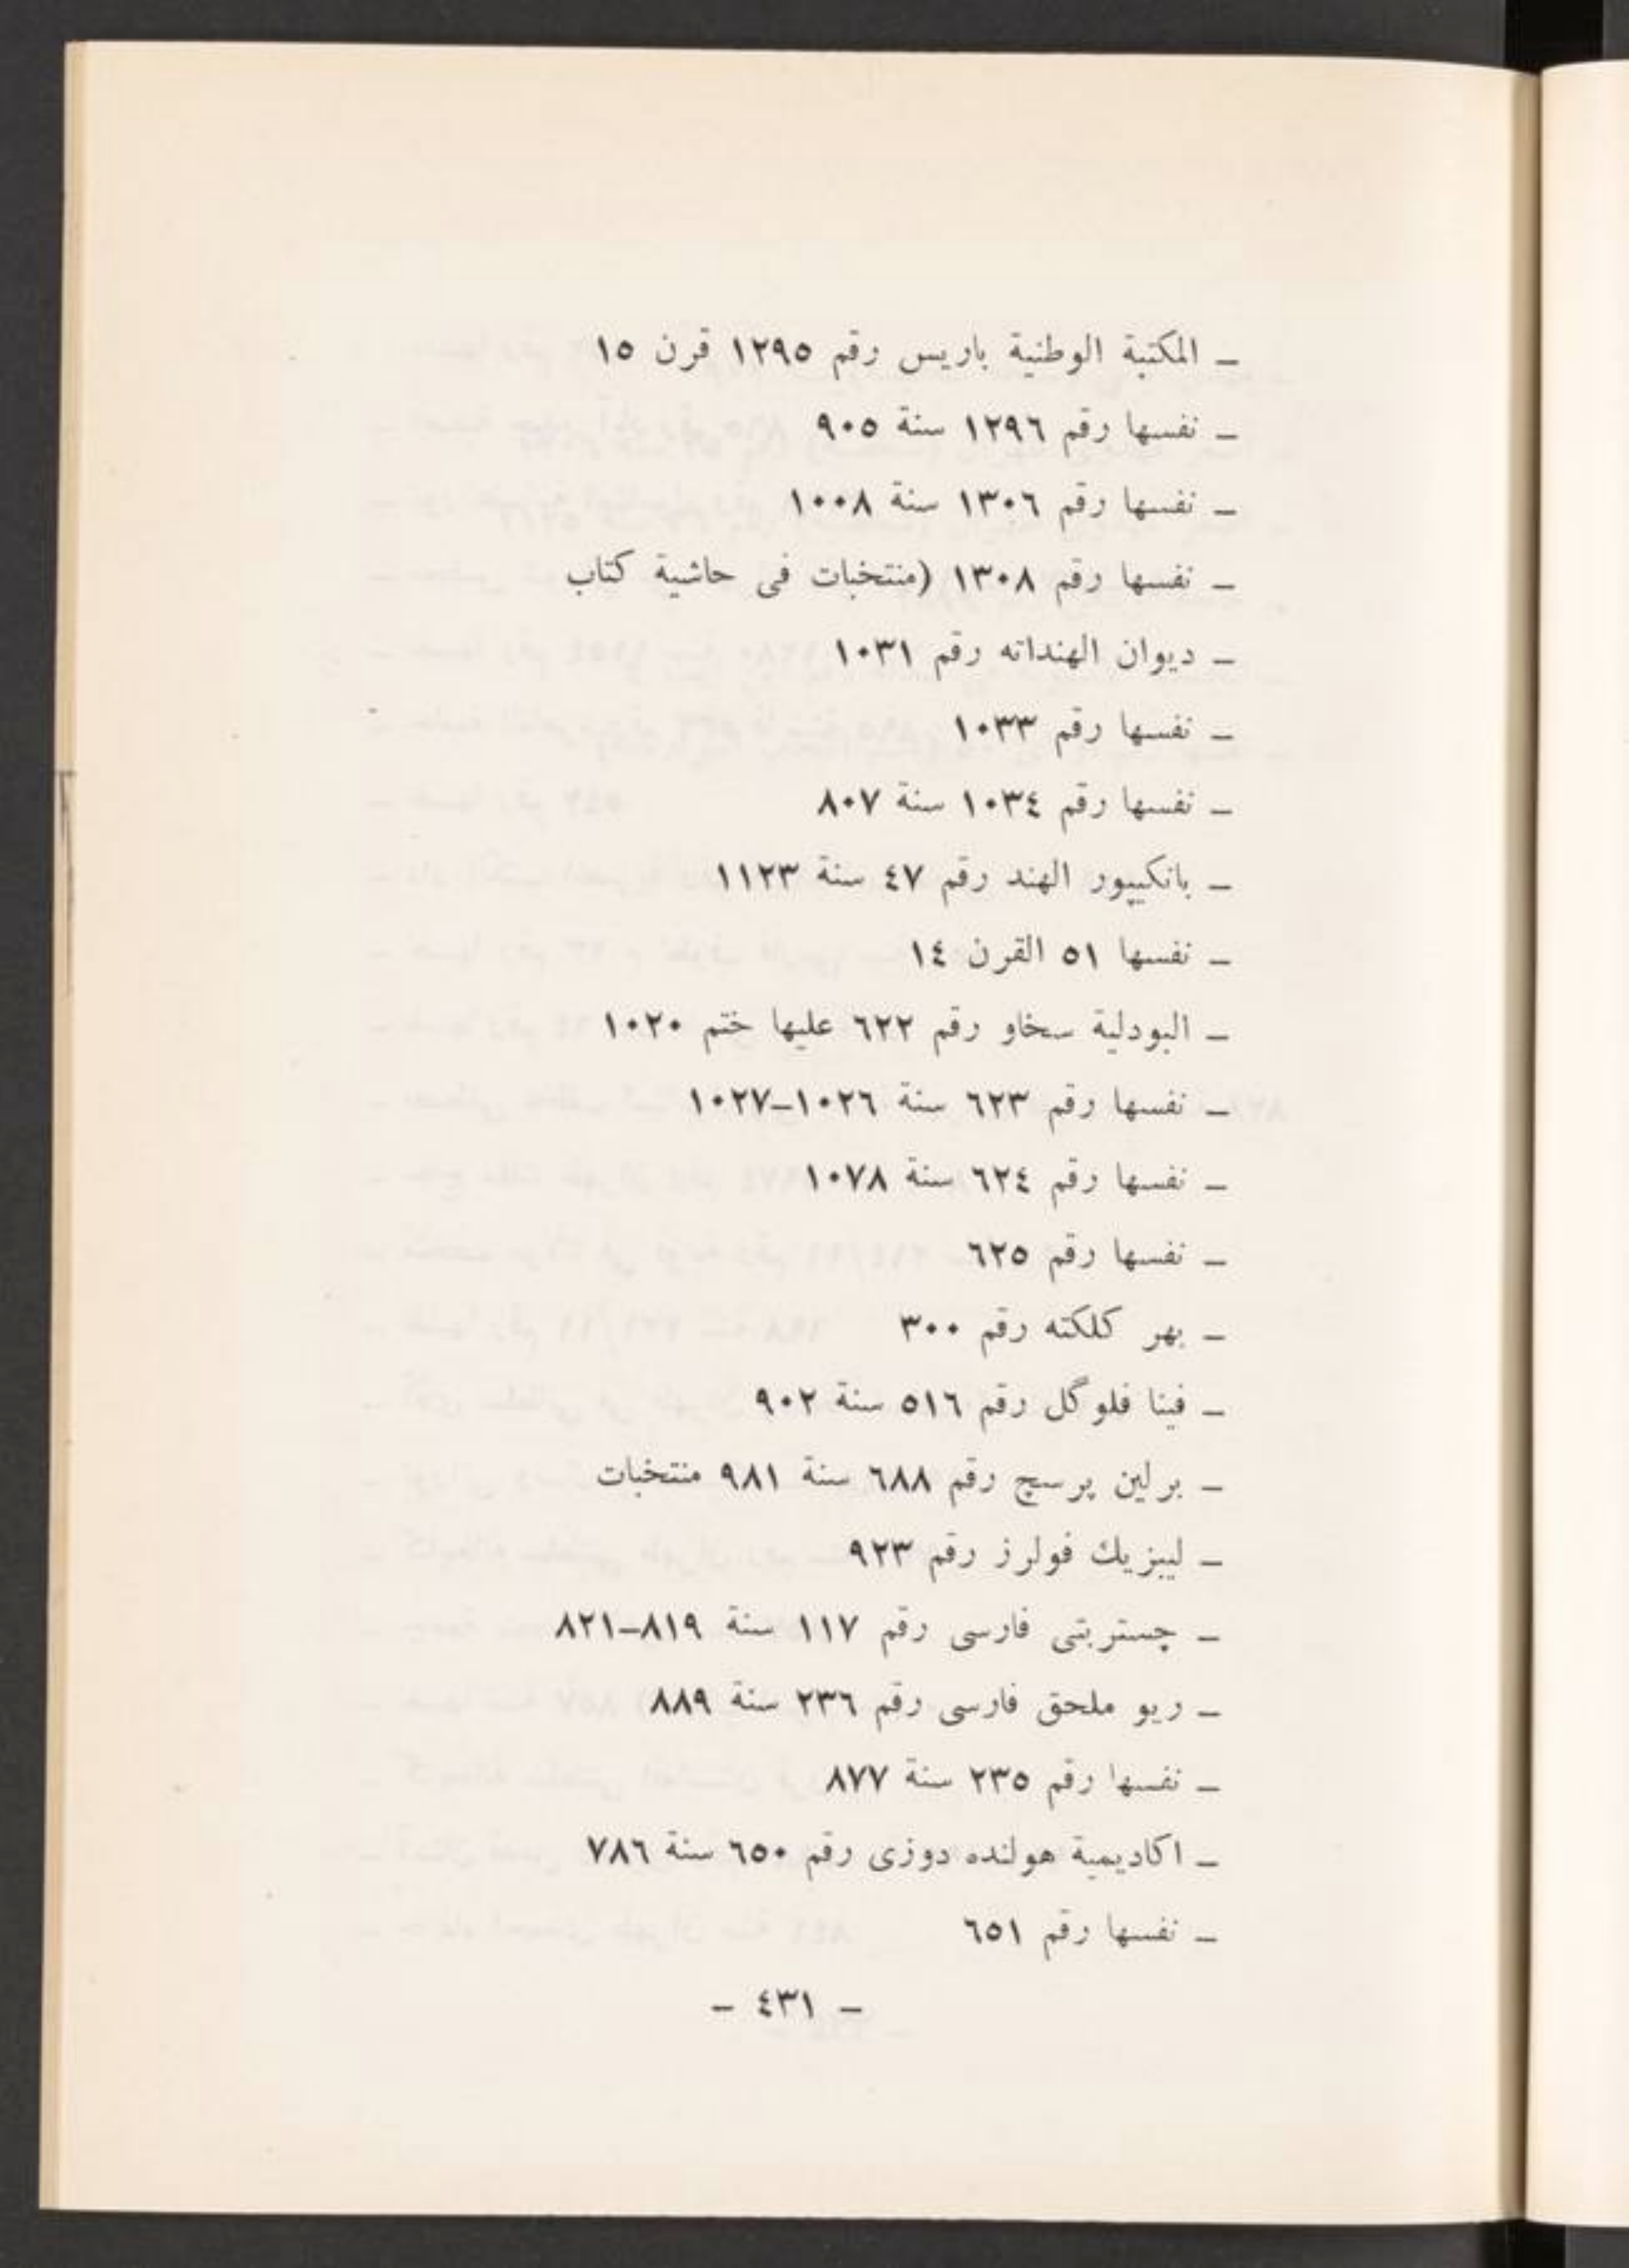 ـ المكتبة الوطنية باريس رقم ١٢٩٥ قرن ١٥
ـ نفسها رقم ١٢٩٦ سنة ٩٠٥
ـ نفسها رقم ١٣٠٦ سنة ١٠٠٨
ـ نفسها رقم ١٣٠٨ (منتخبات فى حاشية كتاب
ـ ديوان الهنداته رقم ١٠٣١
ـ نفسها رقم ١٠٣٣
ـ نفسها رقم ١٠٣٤ سنة ٨٠٧
ـ بانكيپور الهند رقم ٤٧ سنة ١١٢٣
ـ نفسها ٥١ القرن ١٤
ـ البودلية سخاو رقم ٦٢٢ عليها ختم ١٠٢٠
ـ نفسها رقم ٦٢٣ سنة ١٠٢٦ـ١٠٢٧
ـ نفسها رقم ٦٢٤ سنة ١٠٧٨
ـ نفسها رقم ٦٢٥
ـ بهر كلكته رقم ٣٠٠
ـ فينا فلوگل رقم ٥١٦ سنة ٩٠٢
ـ برلين پرسچ رقم ٦٨٨ سنة ٩٨١ منتخبات
ـ ليبزيك فولرز رقم ٩٢٣
ـ چستربتى فارسى رقم ١١٧ سنة ٨١٩ـ٨٢١
ـ ريو ملحق فارسى رقم ٢٣٦ سنة ٨٨٩
ـ نفسها رقم ٢٣٥ سنة ٨٧٧
ـ اكاديمية هولنده دوزى رقم ٦٥٠ سنة ٧٨٦
ـ نفسها رقم ٦٥١
ـ ٤٣١ ـ